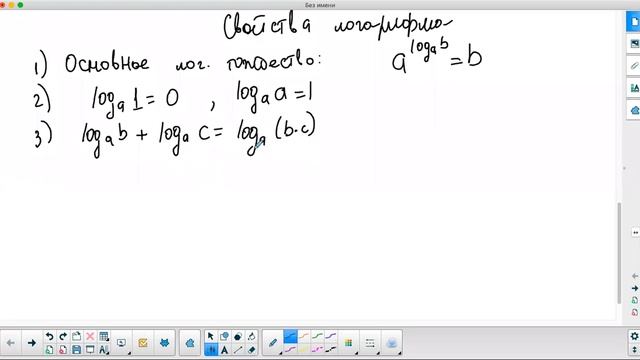 Без имени
Свойства логарифма
1) Основное лог. тождество: a^{log_a b} = b
2) log_a 1 = 0 , log_a a = 1
3) log_a b + log_a c = log_a (b·c)